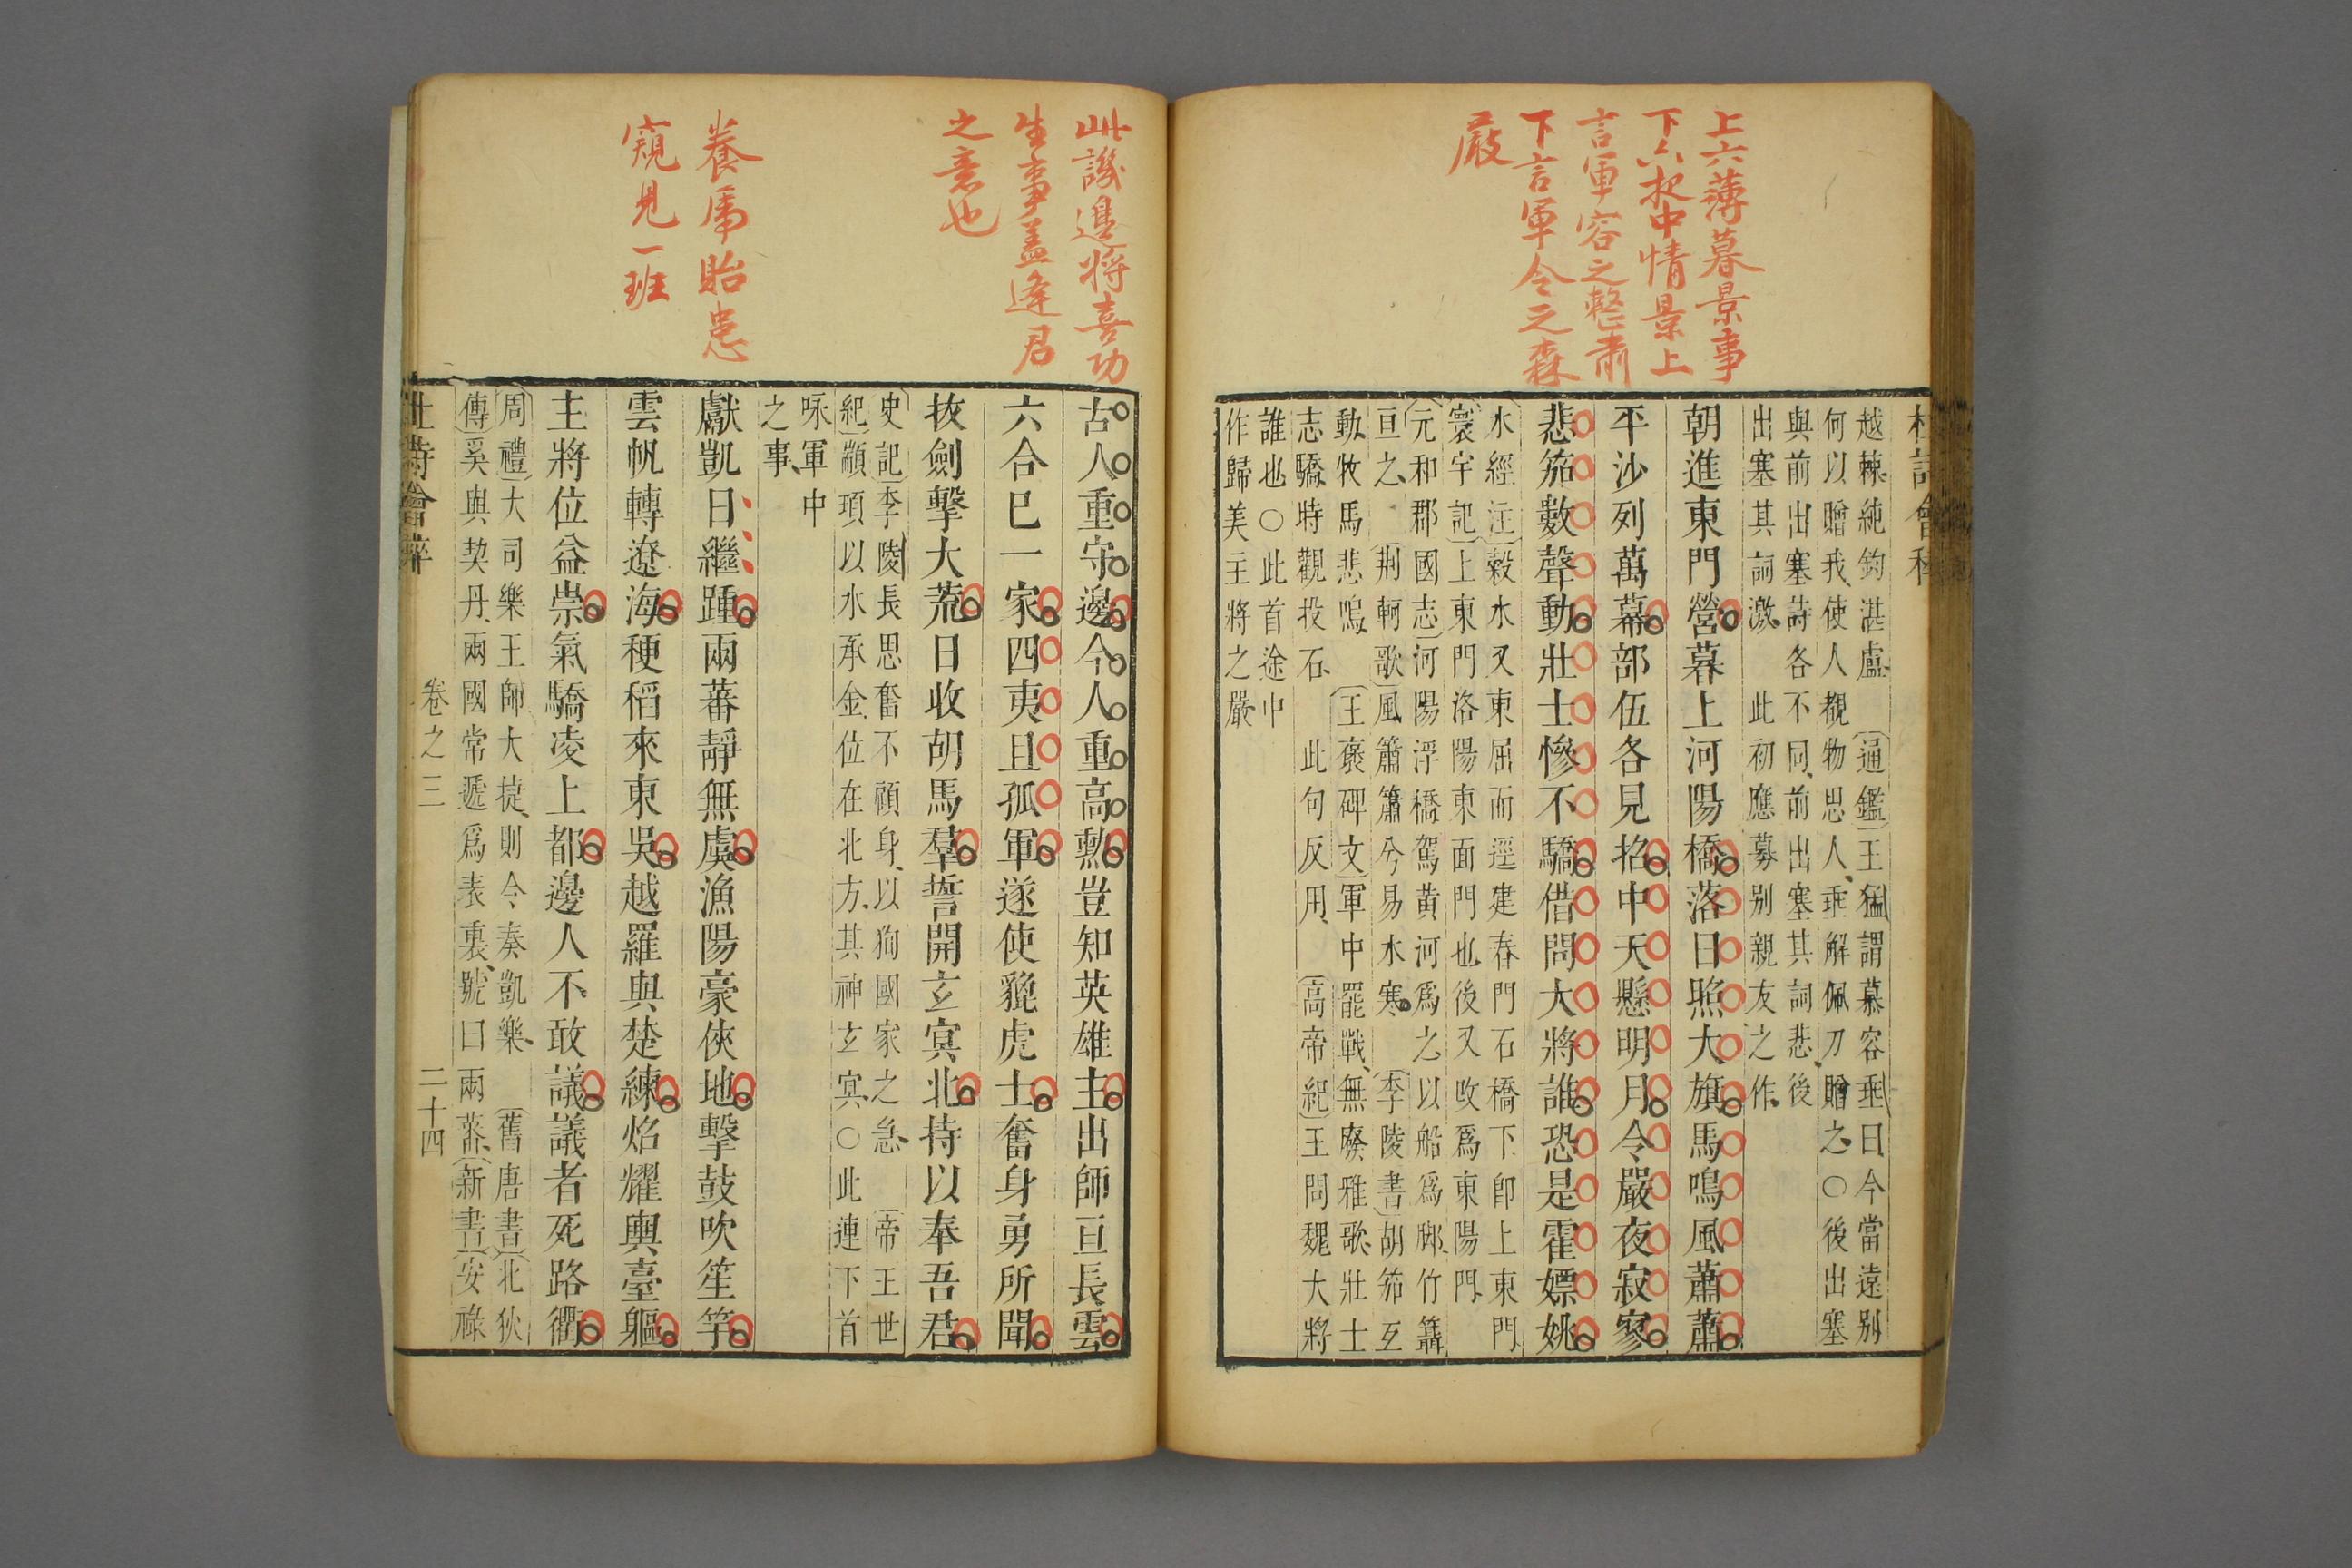 上六薄暮景事
下六夜中情景上
言軍容之整肅
下言軍令之森
嚴
越棘純鈞湛盧 通鑑王猛謂慕容垂曰今當遠別
何以贈我使人覩物思人垂解佩刀贈之〇後出塞
與前出塞詩各不同前出塞其詞悲後
出塞其詞激 此初應募別親友之作
朝進東門營暮上河陽橋落日照大旗馬鳴風蕭蕭
平沙列萬幕部伍各見招中天懸明月令嚴夜寂寥
悲笳數聲動壯士慘不驕借問大將誰恐是霍嫖姚
水經注穀水又東屈而逕建春門石橋下卽上東門
寰宇記上東門洛陽東面門也後又改爲東陽門
元和郡國志河陽浮橋駕黄河爲之以船爲脚竹籊
亘之 荆軻歌風簫簫兮易水寒 李陵書胡笳互
動牧馬悲鳴 王襃碑文軍中罷戰無廢雅歌壯士
志驕時觀投石 此句反用 高帝紀王問魏大將
誰也〇此首途中
作歸美主將之嚴
此譏邊將喜功
生事蓋逢君
之意也
養虎貽患
窺見一班
古人重守邊今人重高勲豈知英雄主出師亘長雲
六合已一家四夷且孤軍遂使貔虎士奮身勇所聞
拔劍擊大荒日收胡馬羣誓開玄冥北持以奉吾君
史記李陵長思奮不顧身以狥國家之急 帝王世
紀顓頊以水承金位在北方其神玄冥〇此連下首
咏軍中
之事
獻凱日繼踵兩蕃靜無虞漁陽豪俠地擊鼓吹笙竽
雲帆轉遼海稉稻來東吳越羅與楚練炤耀輿臺軀
主將位益崇氣驕凌上都邊人不敢議議者死路衢
周禮大司樂王師大捷則令奏凱樂 舊唐書北狄
傳奚與契丹兩國常遞爲表裏號曰兩蕃 新書安祿
杜詩會稡 卷之三 二十四